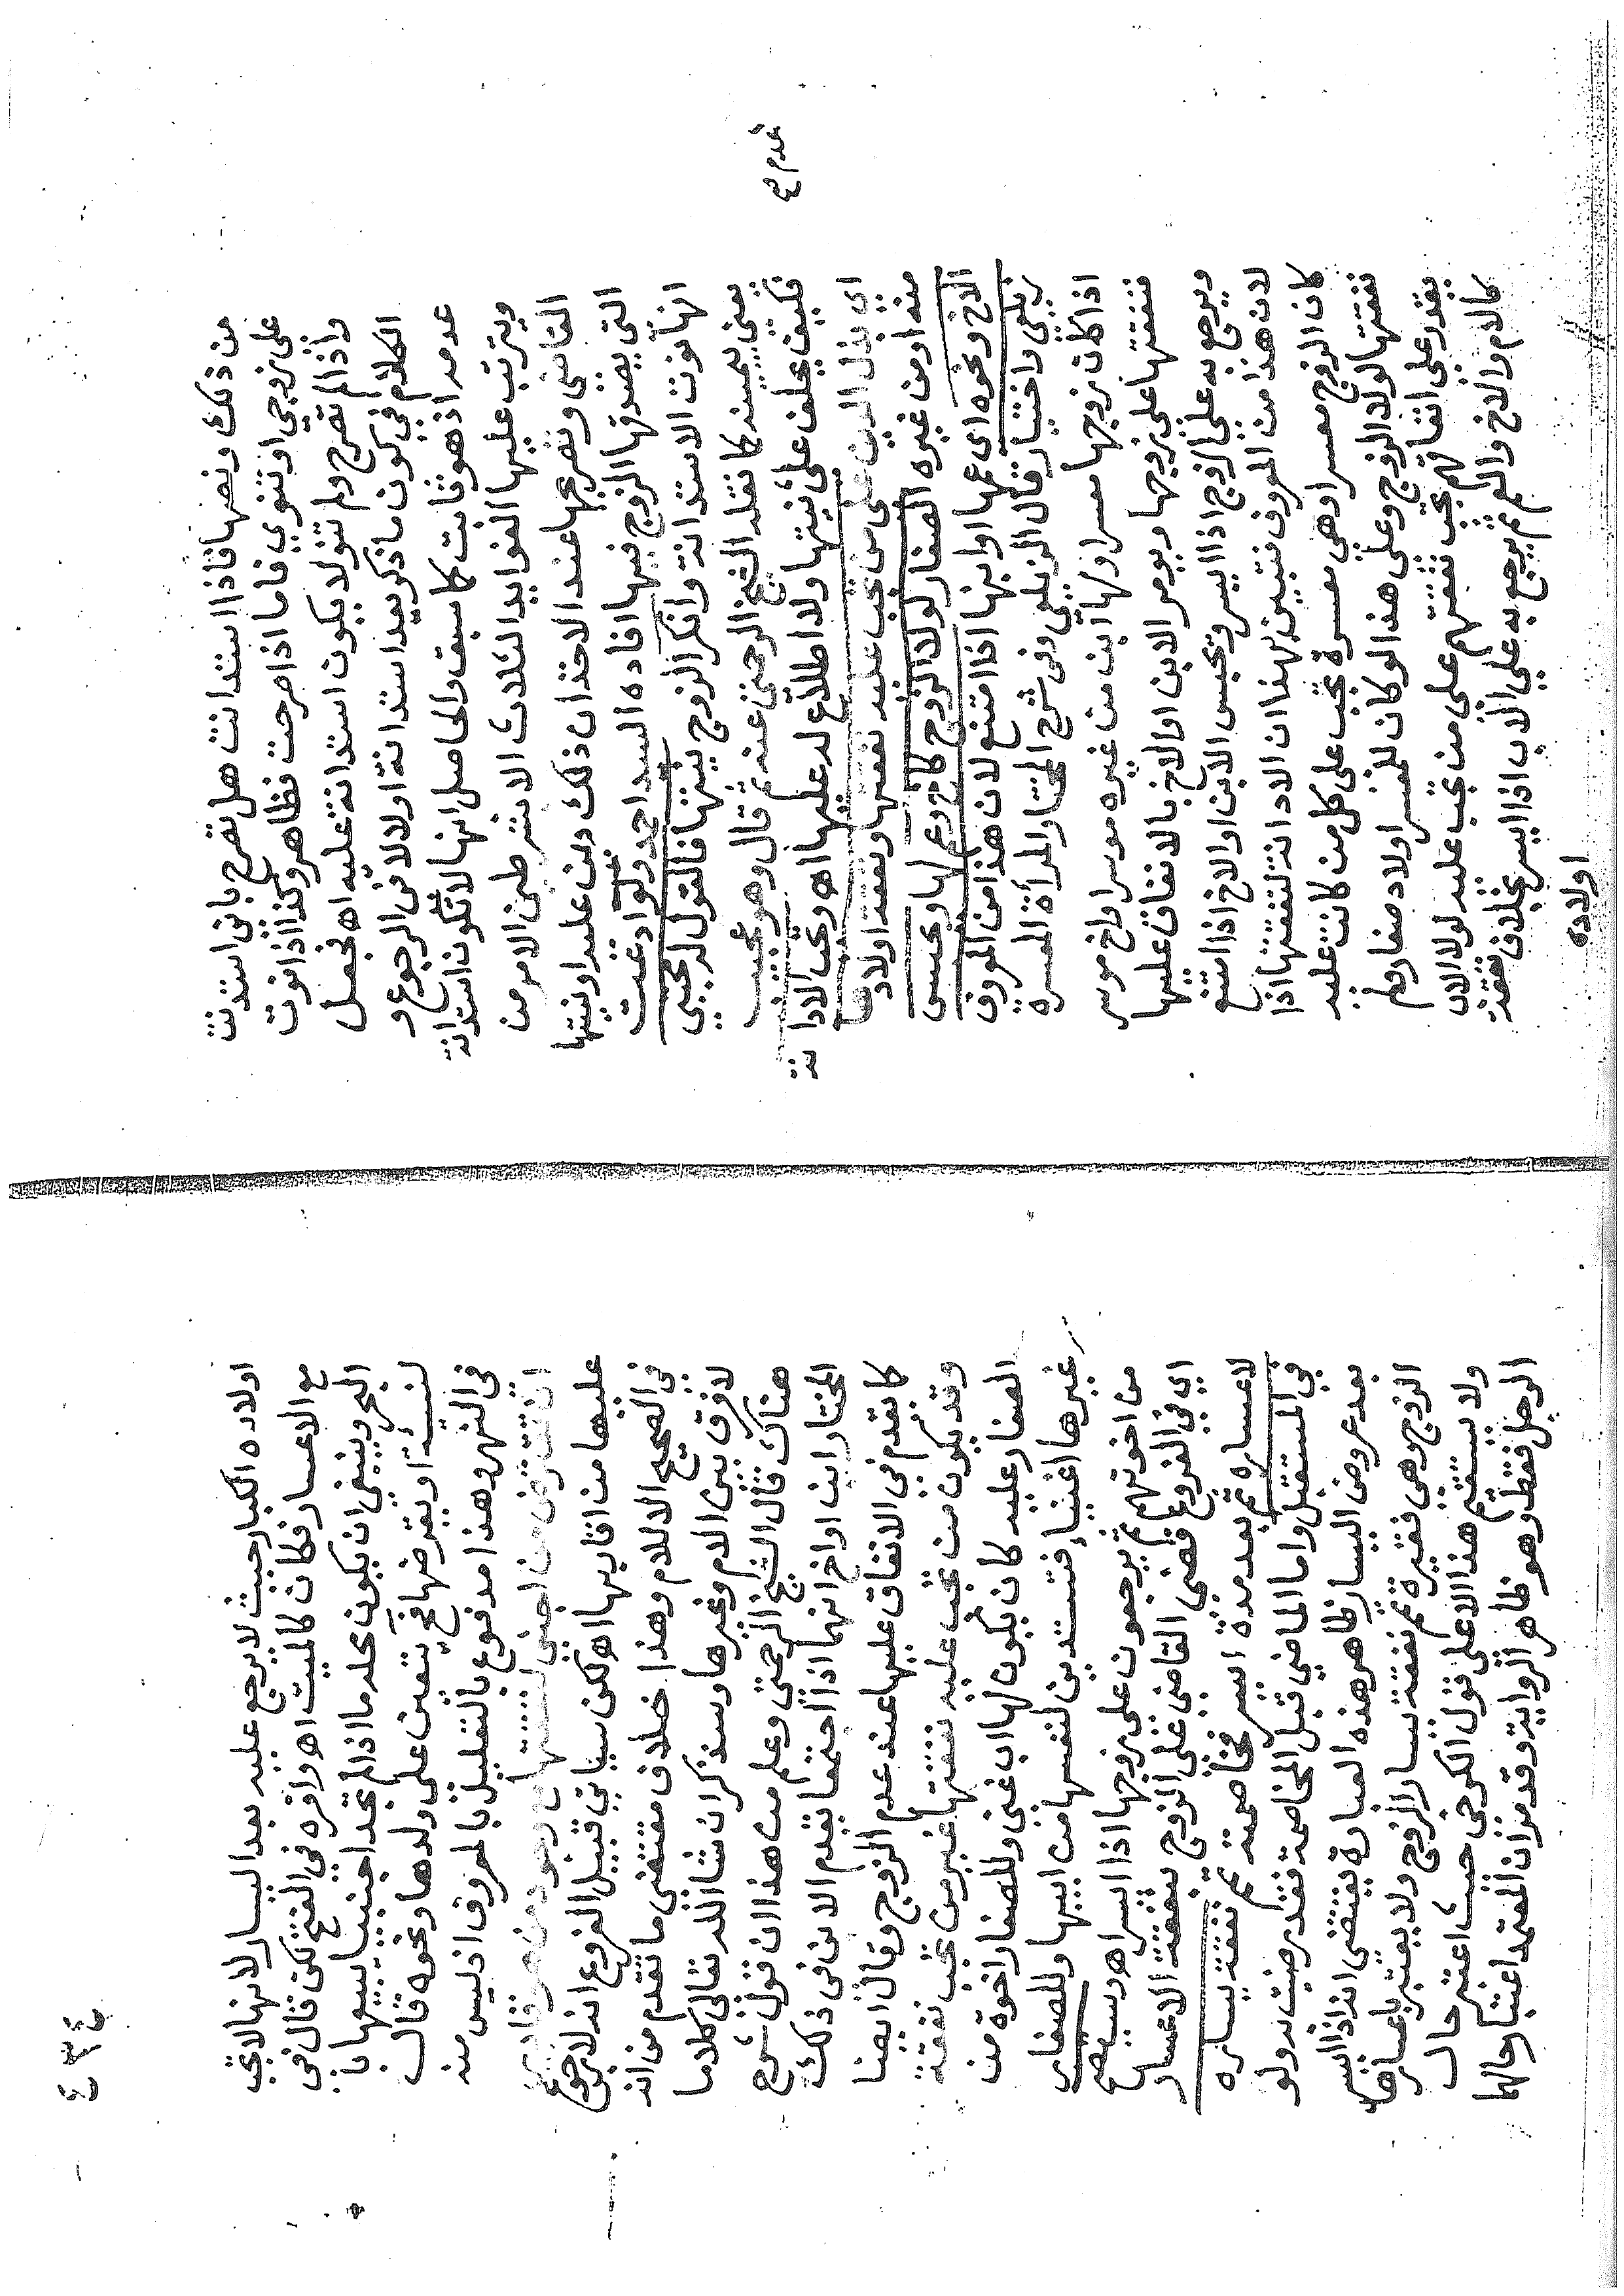 عدم مع
من ذلك ونصها فاذا استدانت هل تصرح بانى استدنت
على زوجي او تنوي فاما اذا صرحت فظاهر وكذا اذا نوت
واذا لم تصرح ولم تنو لا يكون استدانة عليه اه فجعل
الكلام في كون ما ذكر بعد استدانة اولا لا فى الرجوع و
عدمه اذ هو ثابت كما سبق والحاصل انها لا تكون استدانة
ويترتب عليها الفوايد الثلاث الا بشرطين الامر من
القاضى وتصريحها عند الاخذ ان ذلك دين عليه او نيتها
التى يصدقها الزوج فيها افاده السيد احمد ولو ادعت
انها نوت الاستدانة وانكر الزوج نيتها فالقول له مجتبى
يعنى بيمينه كما نقله الشيخ الرحمتى عنه ثم قال وهو عجيب
فكيف يحلف على نيتها ولا اطلاع له عليها اه وتجب الادانة
اى بذل الدين على من تجب عليه نفقتها ونفقة اولادها
منه او من غيره الصغار لولا الزوج كاخ وعم لها ويحبس
الاخ ونحوه اى عمها او ابنها اذا امتنع لان هذا من المعروف
زيلعى واختيار قال الزيلعى وفى شرح المختار المرأة المعسرة
اذا كان زوجها معسرا ولها ابن من غيره موسر او اخ موسر
فنفقتها على زوجها ويومر الابن او الاخ بالانفاق عليها
ويرجع به على الزوج اذا ايسر ويحبس الابن او الاخ اذا امتنع
لان هذا من المعروف فتبين بهذا ان الادانة لنفقتها اذا
كان الزوج معسرا وهى معسرة تجب على كل من كانت عليه
نفقتها لولا الزوج وعلى هذا لو كان للمعسر اولاد صغار ولم
يقدر على انفاقهم تجب نفقتهم على من تجب عليه لولا الاب
كالام والاخ والعم ثم يرجع به على الاب اذا ايسر بخلاف نفقة
اولاده
٤٣٤
اولاده الكبار حيث لا يرجع عليه بعد اليسار لانها لا تجب
مع الاعسار فكان كالميت اه واقره في الفتح لكن قال فى
البحر وينبغى ان يكون محله ما اذا لم تجد اجنبيا يبيعها با
لنسيئة او يقرضها فح تتعين على ولدها ونحوه قال
فى النهر وهذا مدفوع بالتعليل بالمعروف اذ ليس منه
ان تستقرض من اجنبى لنفقتها مع وجود من هو قادر
عليها من اقاربها اه لكن سياتي قبيل الفروع انه لا رجوع
في الصحيح الا للام وهذا خلاف مقتضى ما تقدم من انه
لا فرق بين الام وغيرها وسنذكر ان شا الله تعالى كلاما
هناك قال الشيخ الرحمتى وعلم من هذا ان قول شرح
المختار ابن او اخ انهما اذا اجتمعا يقدم الابن فى ذلك
كما تقدم في الانفاق عليها عند عدم الزوج وقال ايضا
وقد يكون من تجب عليه نفقتها غير من تجب نفقة
الصغار عليه كان يكون لها اب غنى وللصغار اخوة من
غيرها اغنياء فتستدين لنفسها من ابيها وللصغار
من اخوتهم ثم يرجعون على زوجها اذا ايسر اه وسيتضح
اى في الفروع قضى القاضى على الزوج بنفقة الاعسار
لاعساره ثم بعد مدة ايسر فخاصمته تم نفقة يساره
في المستقبل واما الماضي قبل المخاصمة فقد رضيت به ولو
بعد عروض اليسار ظاهر هذه العبارة يقتضى انه اذا ايسر
الزوج وهى فقيرة تتم نفقة يسار الزوج ولا يعتبر باعسارها
ولا يستقيم هذا الا على قول الكرخى حيث اعتبر حال
الرجل فقط وهو ظاهر الرواية وقد مر ان المعتمد اعتبار حالهما